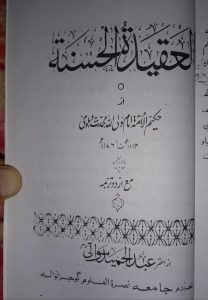 العقيدة الحسنة
از
حکیم الامة امام ولی اللہ محدث دہلوی
مع اردو ترجمہ
از احقر عبدالحمید سواتی
خادم جامعہ نصرة العلوم گوجرانوالہ